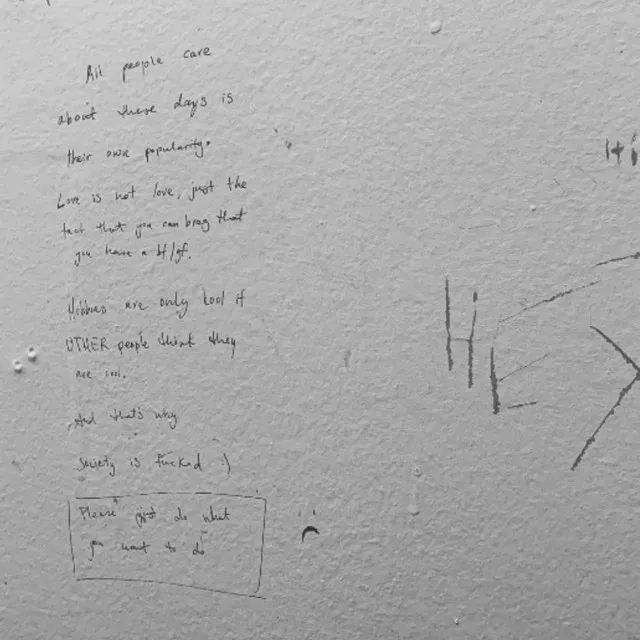 All people care
about these days is
their own popularity.
Love is not love, just the
fact that you can brag that
you have a bf/gf.
Hobbies are only cool if
OTHER people think they
are cool.
And that's why
society is fucked :)
Please just do what
you want to do
Hi
Hi